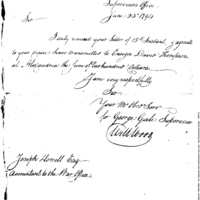 Supervisors Office
June 23d 1791
Sir
I duly received your Letter of 15th Instant, & agreeable
to your request have transmitted to Ensign David Thompson
at Alexandria the sum of hundred Dollars
I am very respectfully
Sir
Your Mo Obt Serv
for George Gale Supervisor
Joseph Howell Esq
Accountant to the War Office